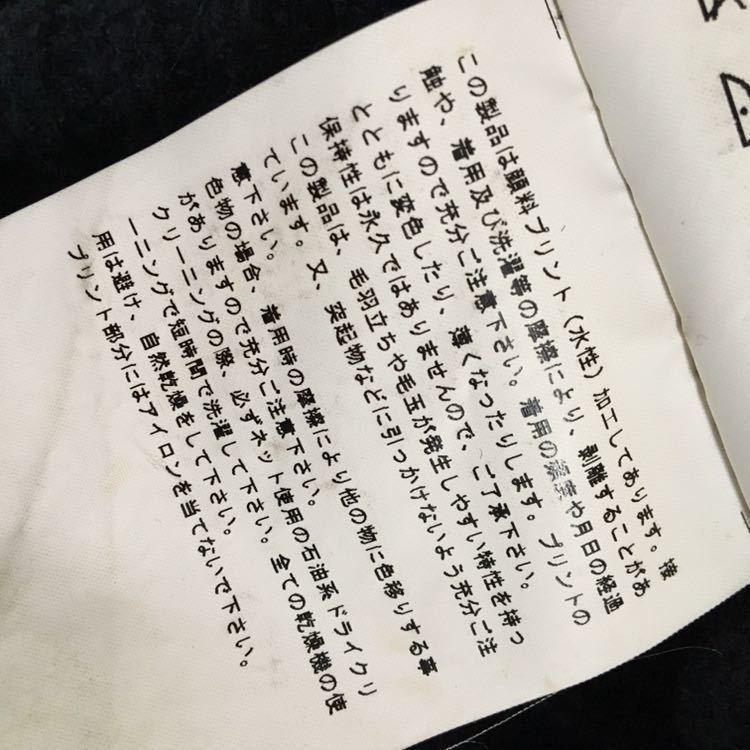 この製品は顔料プリント（水性）加工してあります。接
触や、着用及び洗濯等の摩擦により、剥離することがあ
りますので充分ご注意下さい。着用の頻度や月日の経過
とともに変色したり、薄くなったりします。プリントの
保持性は永久ではありませんので、ご了承下さい。
この製品は、毛羽立ちや毛玉が発生しやすい特性を持っ
ています。又、突起物などに引っかけないよう充分ご注
意下さい。
色物の場合、着用時の摩擦により他の物に色移りする事
がありますので充分ご注意下さい。
クリーニングの際、必ずネット使用の石油系ドライクリ
ーニングで短時間で洗濯して下さい。全ての乾燥機の使
用は避け、自然乾燥をして下さい。
プリント部分にはアイロンを当てないで下さい。